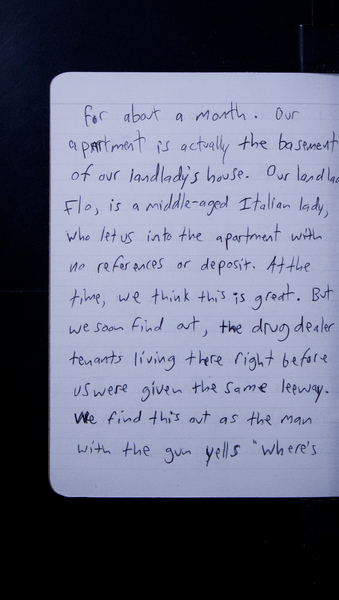 for about a month. Our
apartment is actually the basement
of our landlady's house. Our landlad
Flo, is a middle-aged Italian lady,
who let us into the apartment with
no references or deposit. At the
time, we think this is great. But
we soon find out, the drug dealer
tenants living there right before
us were given the same leeway.
We find this out as the man
with the gun yells "Where's